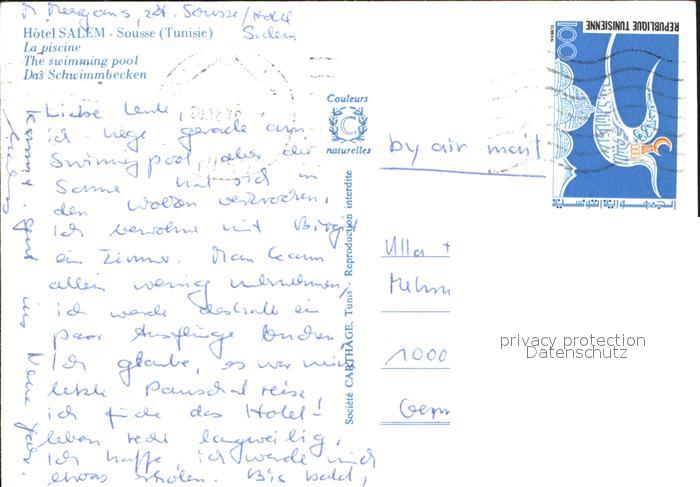 Sousse/Hotel
Salem
Hôtel SALEM - Sousse (Tunisie)
La piscine
The swimming pool
Das Schwimmbecken
Liebe Leute,
ich liege gerade am
Swimmingpool, aber die
Sonne hat sich in
den Wolken verkrochen.
Ich bewohne mit Birgit
ein Zimmer. Man kann
allein wenig unternehmen,
ich werde deshalb ein
paar Ausflüge buchen.
Ich glaube, es war meine
letzte Pauschalreise!
ich finde das Hotel-
leben recht langweilig.
Ich hoffe, ich werde mich
etwas erholen. Bis bald,
kommt gut ins Neue Jahr.
Couleurs
C
naturelles
Société CARTHAGE, Tunis - Reproduction interdite
by air mail
Ulla +
1000
Germ
REPUBLIQUE TUNISIENNE
100
الجمهورية التونسية
privacy protection
Datenschutz